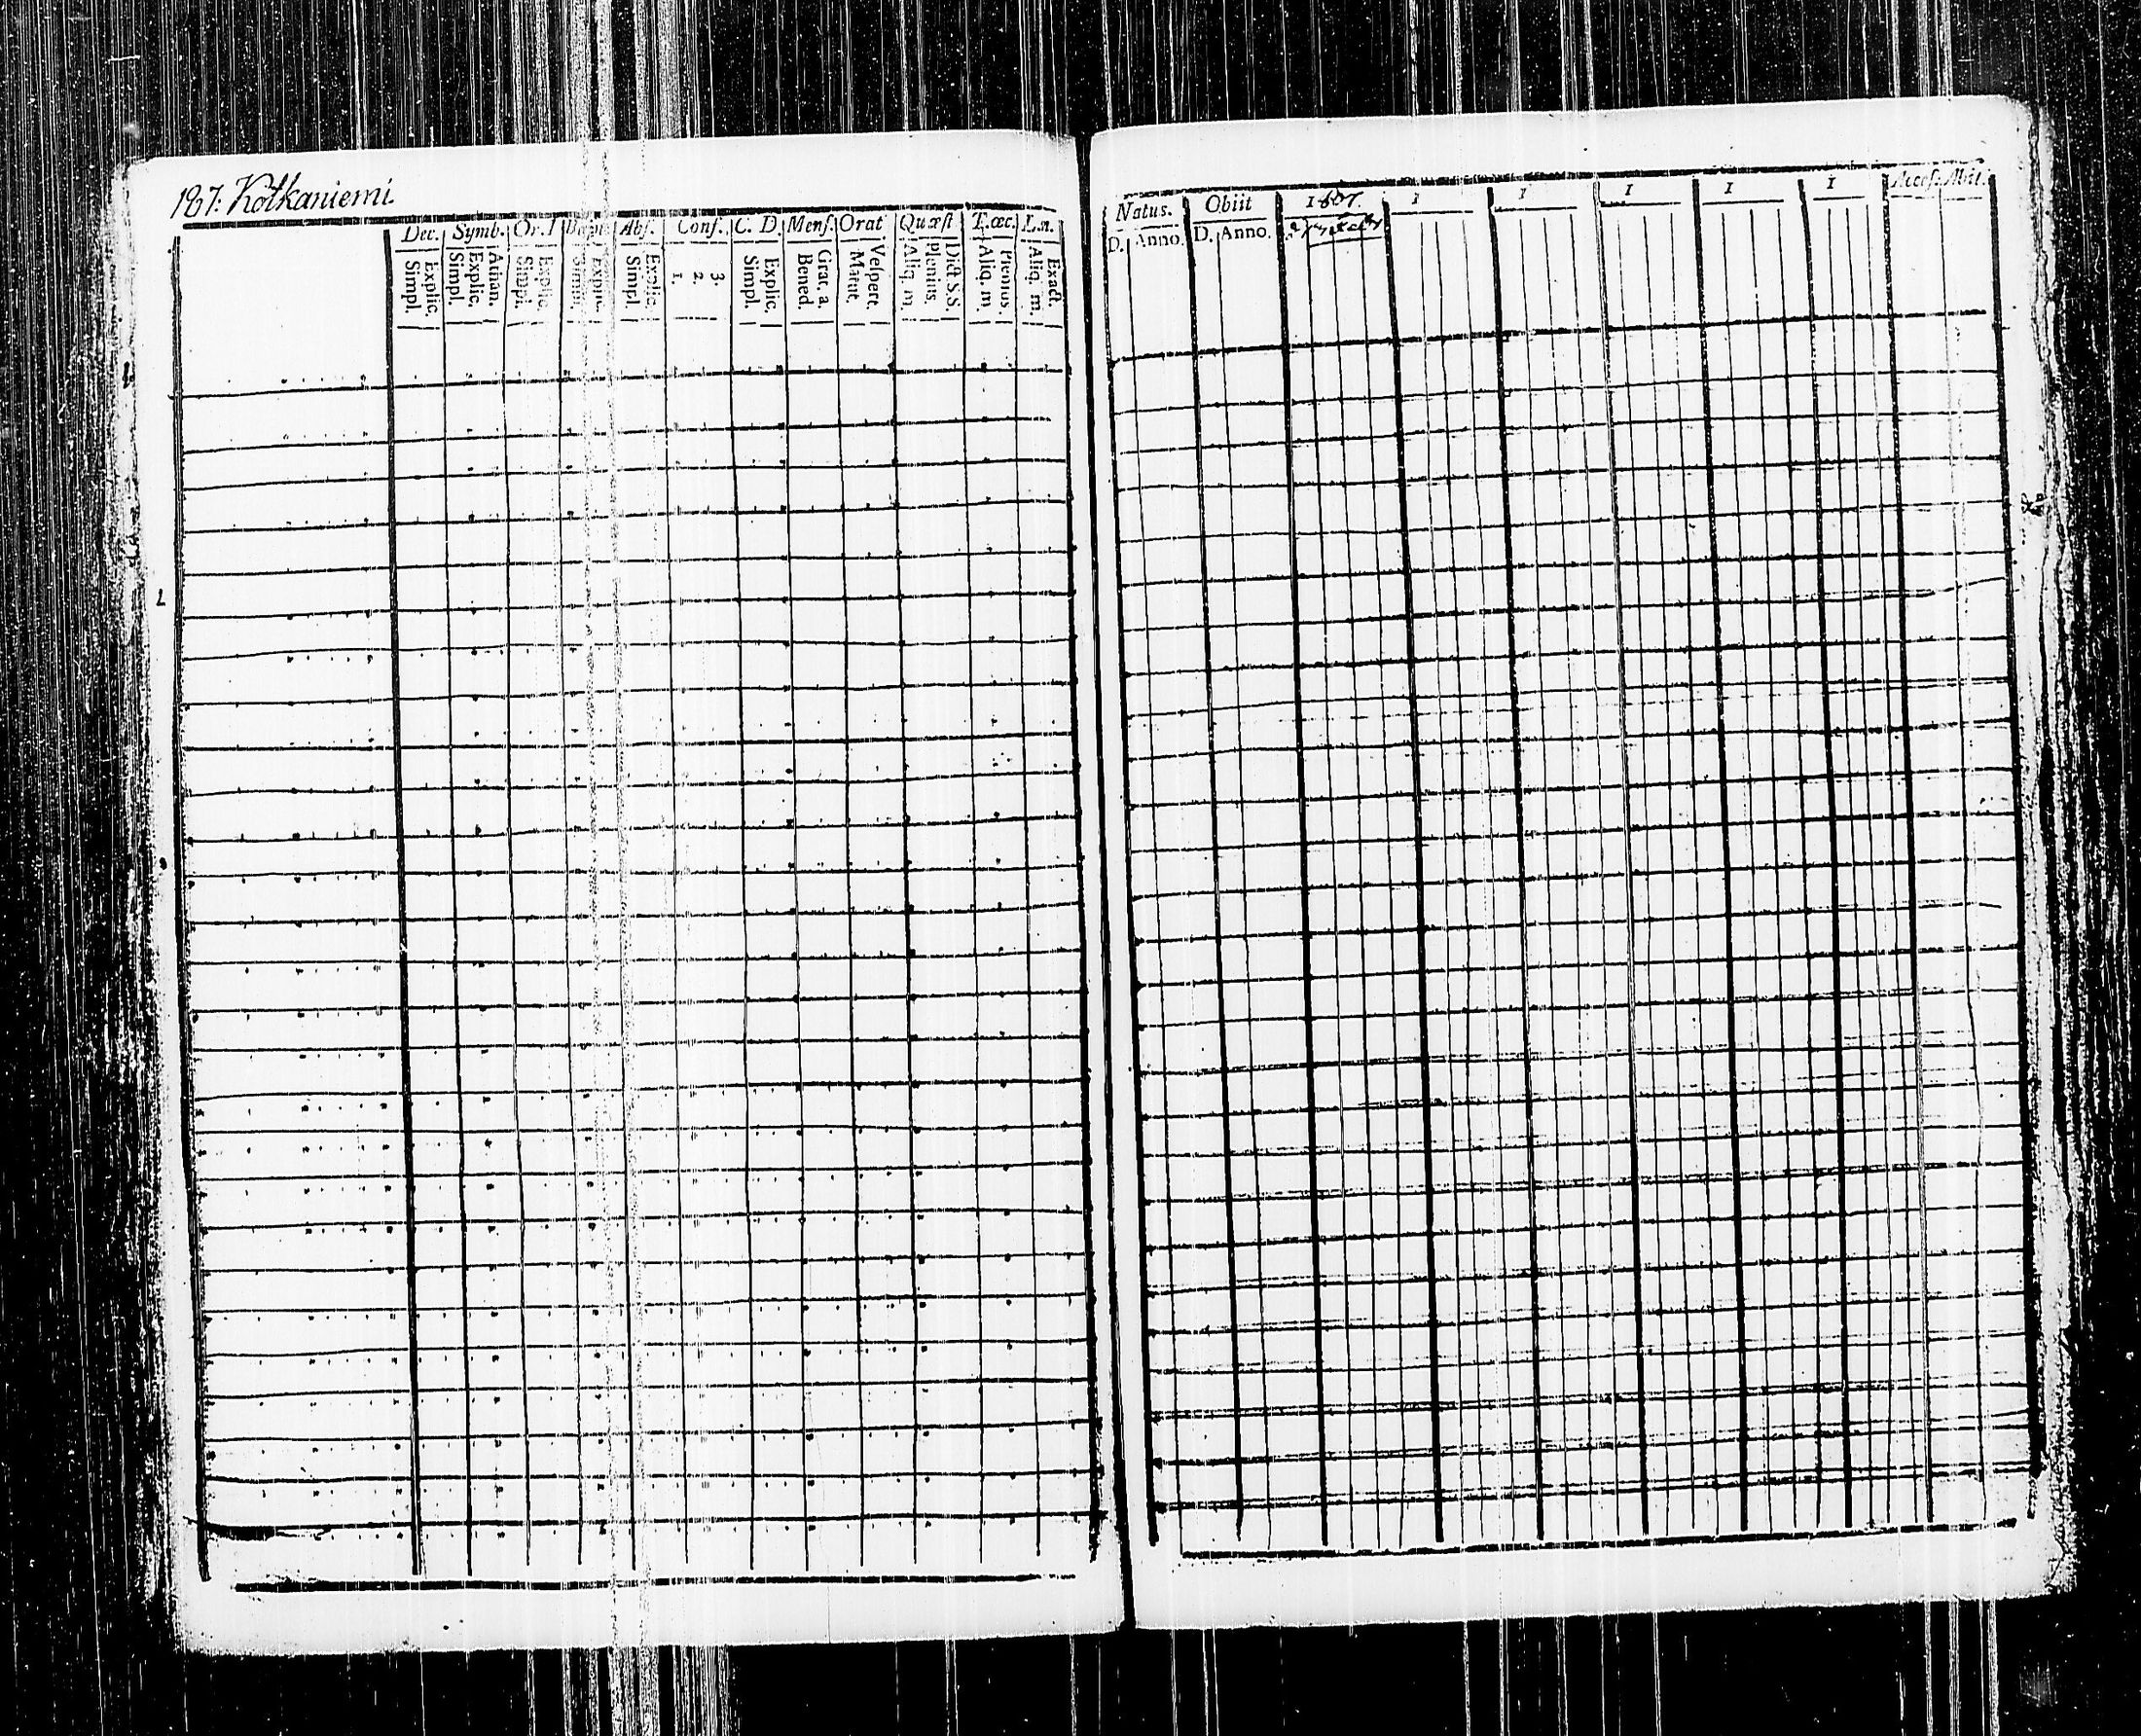 187: Kotkaniemi
Dec. Symb. Or. Abs. Conf. C. D. Mens. Orat Quæst T. œc.
Simpl. Explic. Simpl. Explic. Athan. Simpl. Explic. Simpl. Explic. Simpl. Explic. 1. 2. 3. Simpl. Explic. Bened. Grat. a. Matut. Vespert. Aliq. m. Plenius. Dict S.S. Aliq. m. Plenius. Aliq. m. Exact.
Natus. Obiit 1807. 1 1 1 1 1 Acces. Abit.
D. Anno. D. Anno.